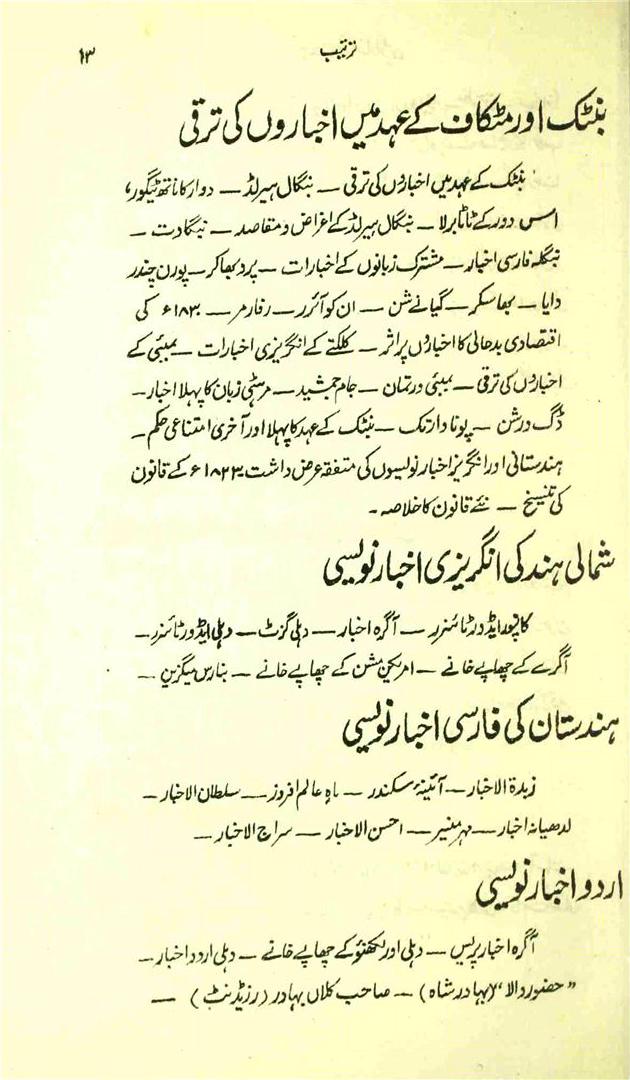 ترتیب ۱۳
بنٹنک اور مٹکاف کے عہد میں اخباروں کی ترقی
بنٹنک کے عہد میں اخباروں کی ترقی — بنگال ہیرلڈ — دوارکا ناتھ ٹیگور،
اس دور کے ٹاٹا برلا — بنگال ہیرلڈ کے اغراض و مقاصد — بنگادت —
بنگلہ فارسی اخبار — مشترک زبانوں کے اخبارات — پردبھاکر — پورن چندر
دایا — بھاسکر — گیانے شن — ان کوائرر — رفارمر — ۱۸۳۰ء کی
اقتصادی بدحالی کا اخباروں پر اثر — کلکتے کے انگریزی اخبارات — بمبئی کے
اخباروں کی ترقی — بمبئی ورتمان — جام جمشید — مرہٹی زبان کا پہلا اخبار —
ڈگ درشن — پونا وارتک — بنٹک کے عہد کا پہلا اور آخری امتناعی حکم —
ہندستانی اور انگریز اخبار نویسوں کی متفقہ عرض داشت ۱۸۲۳ء کے قانون
کی تنسیخ — نئے قانون کا خلاصہ۔
شمالی ہند کی انگریزی اخبار نویسی
کانپور ایڈورٹائزر — آگرہ اخبار — دہلی گزٹ — دہلی ایڈورٹائزر —
آگرے کے چھاپے خانے — امریکن مشن کے چھاپے خانے — بنارس میگزین —
ہندستان کی فارسی اخبار نویسی
زبدۃ الاخبار — آئینۂ سکندر — ماہِ عالم افروز — سلطان الاخبار —
لدھیانہ اخبار — مہر منیر — احسن الاخبار — سراج الاخبار —
اردو اخبار نویسی
آگرہ اخبار پریس — دہلی اور لکھنؤ کے چھاپے خانے — دہلی اردو اخبار —
"حضور والا" (بہادر شاہ) — صاحب کلاں بہادر (رزیڈنٹ) —